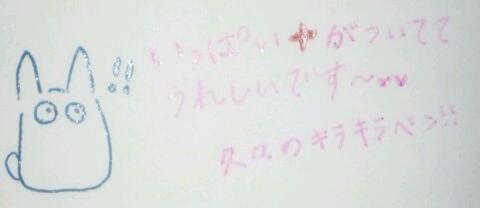 いっぱい✦がついてて
うれしいです〜♥♥
久々のキラキラペン!!
!!